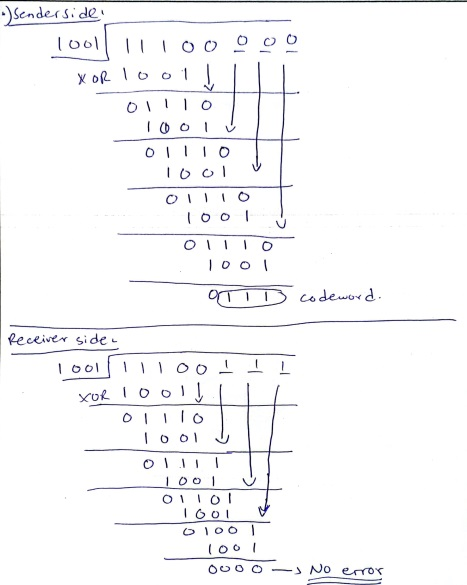 •) Sender side:
1001 11100 000
XOR 1001
01110
1001
01110
1001
01110
1001
01110
1001
0111 codeword.
Receiver side:
1001 11100 111
XOR 1001
01110
1001
01111
1001
01101
1001
01001
1001
0000 → No error